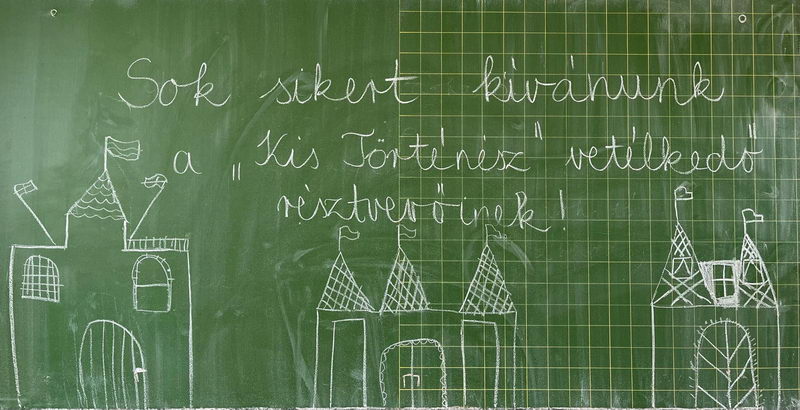 Sok sikert kívánunk
a „Kis Történész" vetélkedő
résztvevőinek!